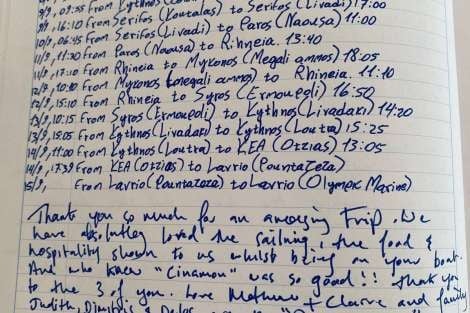 9/9, 09:55 From Kythnos
9/9, 16:10 From Serifos (Koutalas) to Serifos (Livadi) 17:00
10/9, 06:45 From Serifos (Livadi) to Paros (Naousa) 11:00
11/9, 11:30 From Paros (Naousa) to Rihneia. 13:40
11/9, 17:10 From Rhineia to Mykonos (Megali ammos) 18:05
12/9, 10:10 From Mykonos (megali ammos) to Rhineia. 11:10
12/9, 15:10 From Rhineia to Syros (Ermoupoli) 16:50
13/9 10:15 From Syros (Ermoupoli) to Kythnos (Livadaki) 14:20
13/9, 15:05 From Kythnos (Livadaki) to Kythnos (Loutra) 15:25
14/9, 11:00 From Kythnos (Loutra) to KEA (Otzias) 13:05
14/9, 17:39 From KEA (Otzias) to Lavrio (Pountazeza)
15/9, From Lavrio (Pountazeza) to Lavrio (Olympic Marine)
Thank you so much for an amazing trip. We
have absolutley loved the sailing, the food &
hospitality shown to us whilst being on your boat.
And who knew "Cinamon" was so good!! Thank you
to the 3 of you. Love Mathew + Claire and family
Judith, Dimitris &